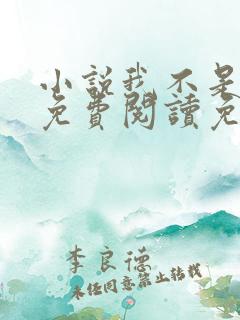 小說我不是
免費閱讀免
李良德
未經同意禁止轉載